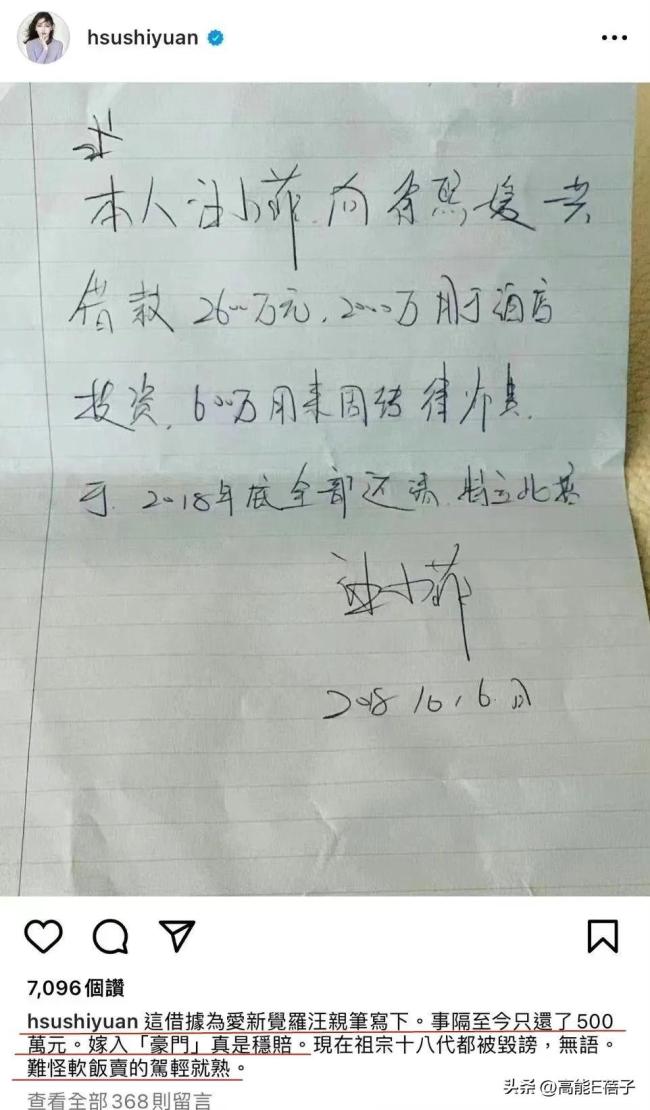 hsushiyuan
本人汪小菲向徐熙媛共
借款2600万元,2000万用于酒店
投资,600万用来周转律师费,
于2018年底全部还清,特立此据
汪小菲
2018.10.6日
7,096個讚
hsushiyuan 這借據為愛新覺羅汪親筆寫下。事隔至今只還了500
萬元。嫁入「豪門」真是穩賠。現在祖宗十八代都被毀謗,無語。
難怪軟飯賣的駕輕就熟。
查看全部368則留言
头条 @高能E蓓子